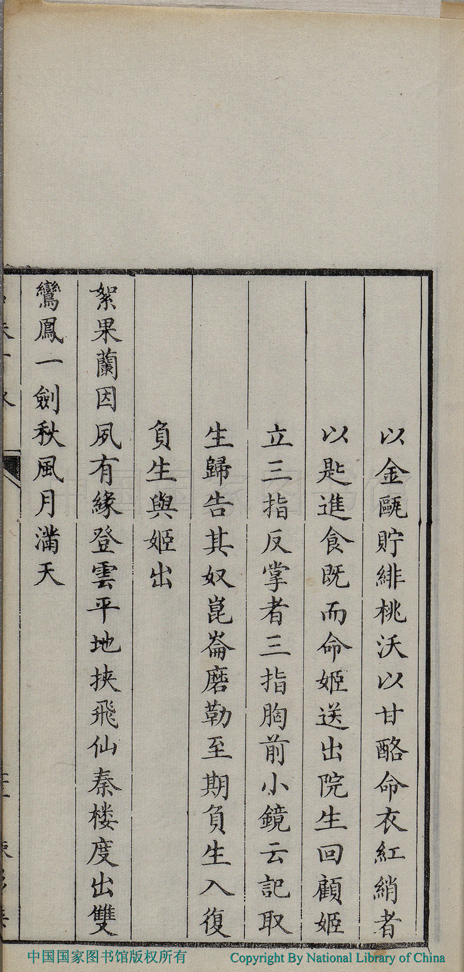 以金甌貯緋桃沃以甘酪命衣紅綃者
以匙進食既而命姬送出院生回顧姬
立三指反掌者三指胸前小鏡云記取
生歸告其奴崑崙磨勒至期負生入復
負生與姬出
絮果蘭因夙有緣登雲平地挾飛仙秦楼度出雙
鸞鳳一劍秋風月滿天
中国国家图书馆版权所有
Copyright By National Library of China